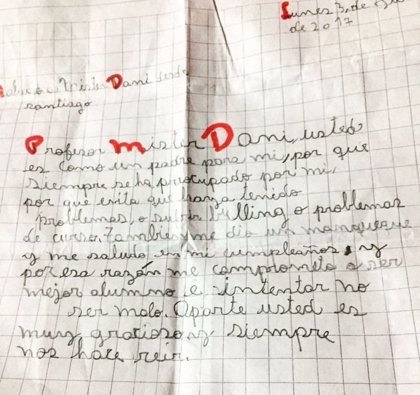 Lunes 3, de
de 2017
Mister Dani
santiago
Profesor Mister Dani, usted
es como un padre para mi, por que
siempre se ha preocupado por mi,
por que evita que haga tenido
problemas, o sufrir bulling o problemas
de curso. Tambien me dio un manqueque
y me saludo en mi cumpleaños, y
por esa razón me comprometo a ser
mejor alumno e intentar no
ser malo. Aparte usted es
muy gratioso y siempre
nos hace reir.